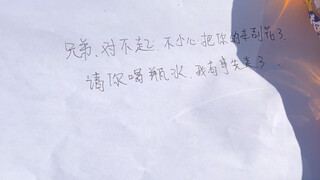 兄弟、对不起、不小心把你的车刮箱了
请你喝瓶水、我有事先走了.